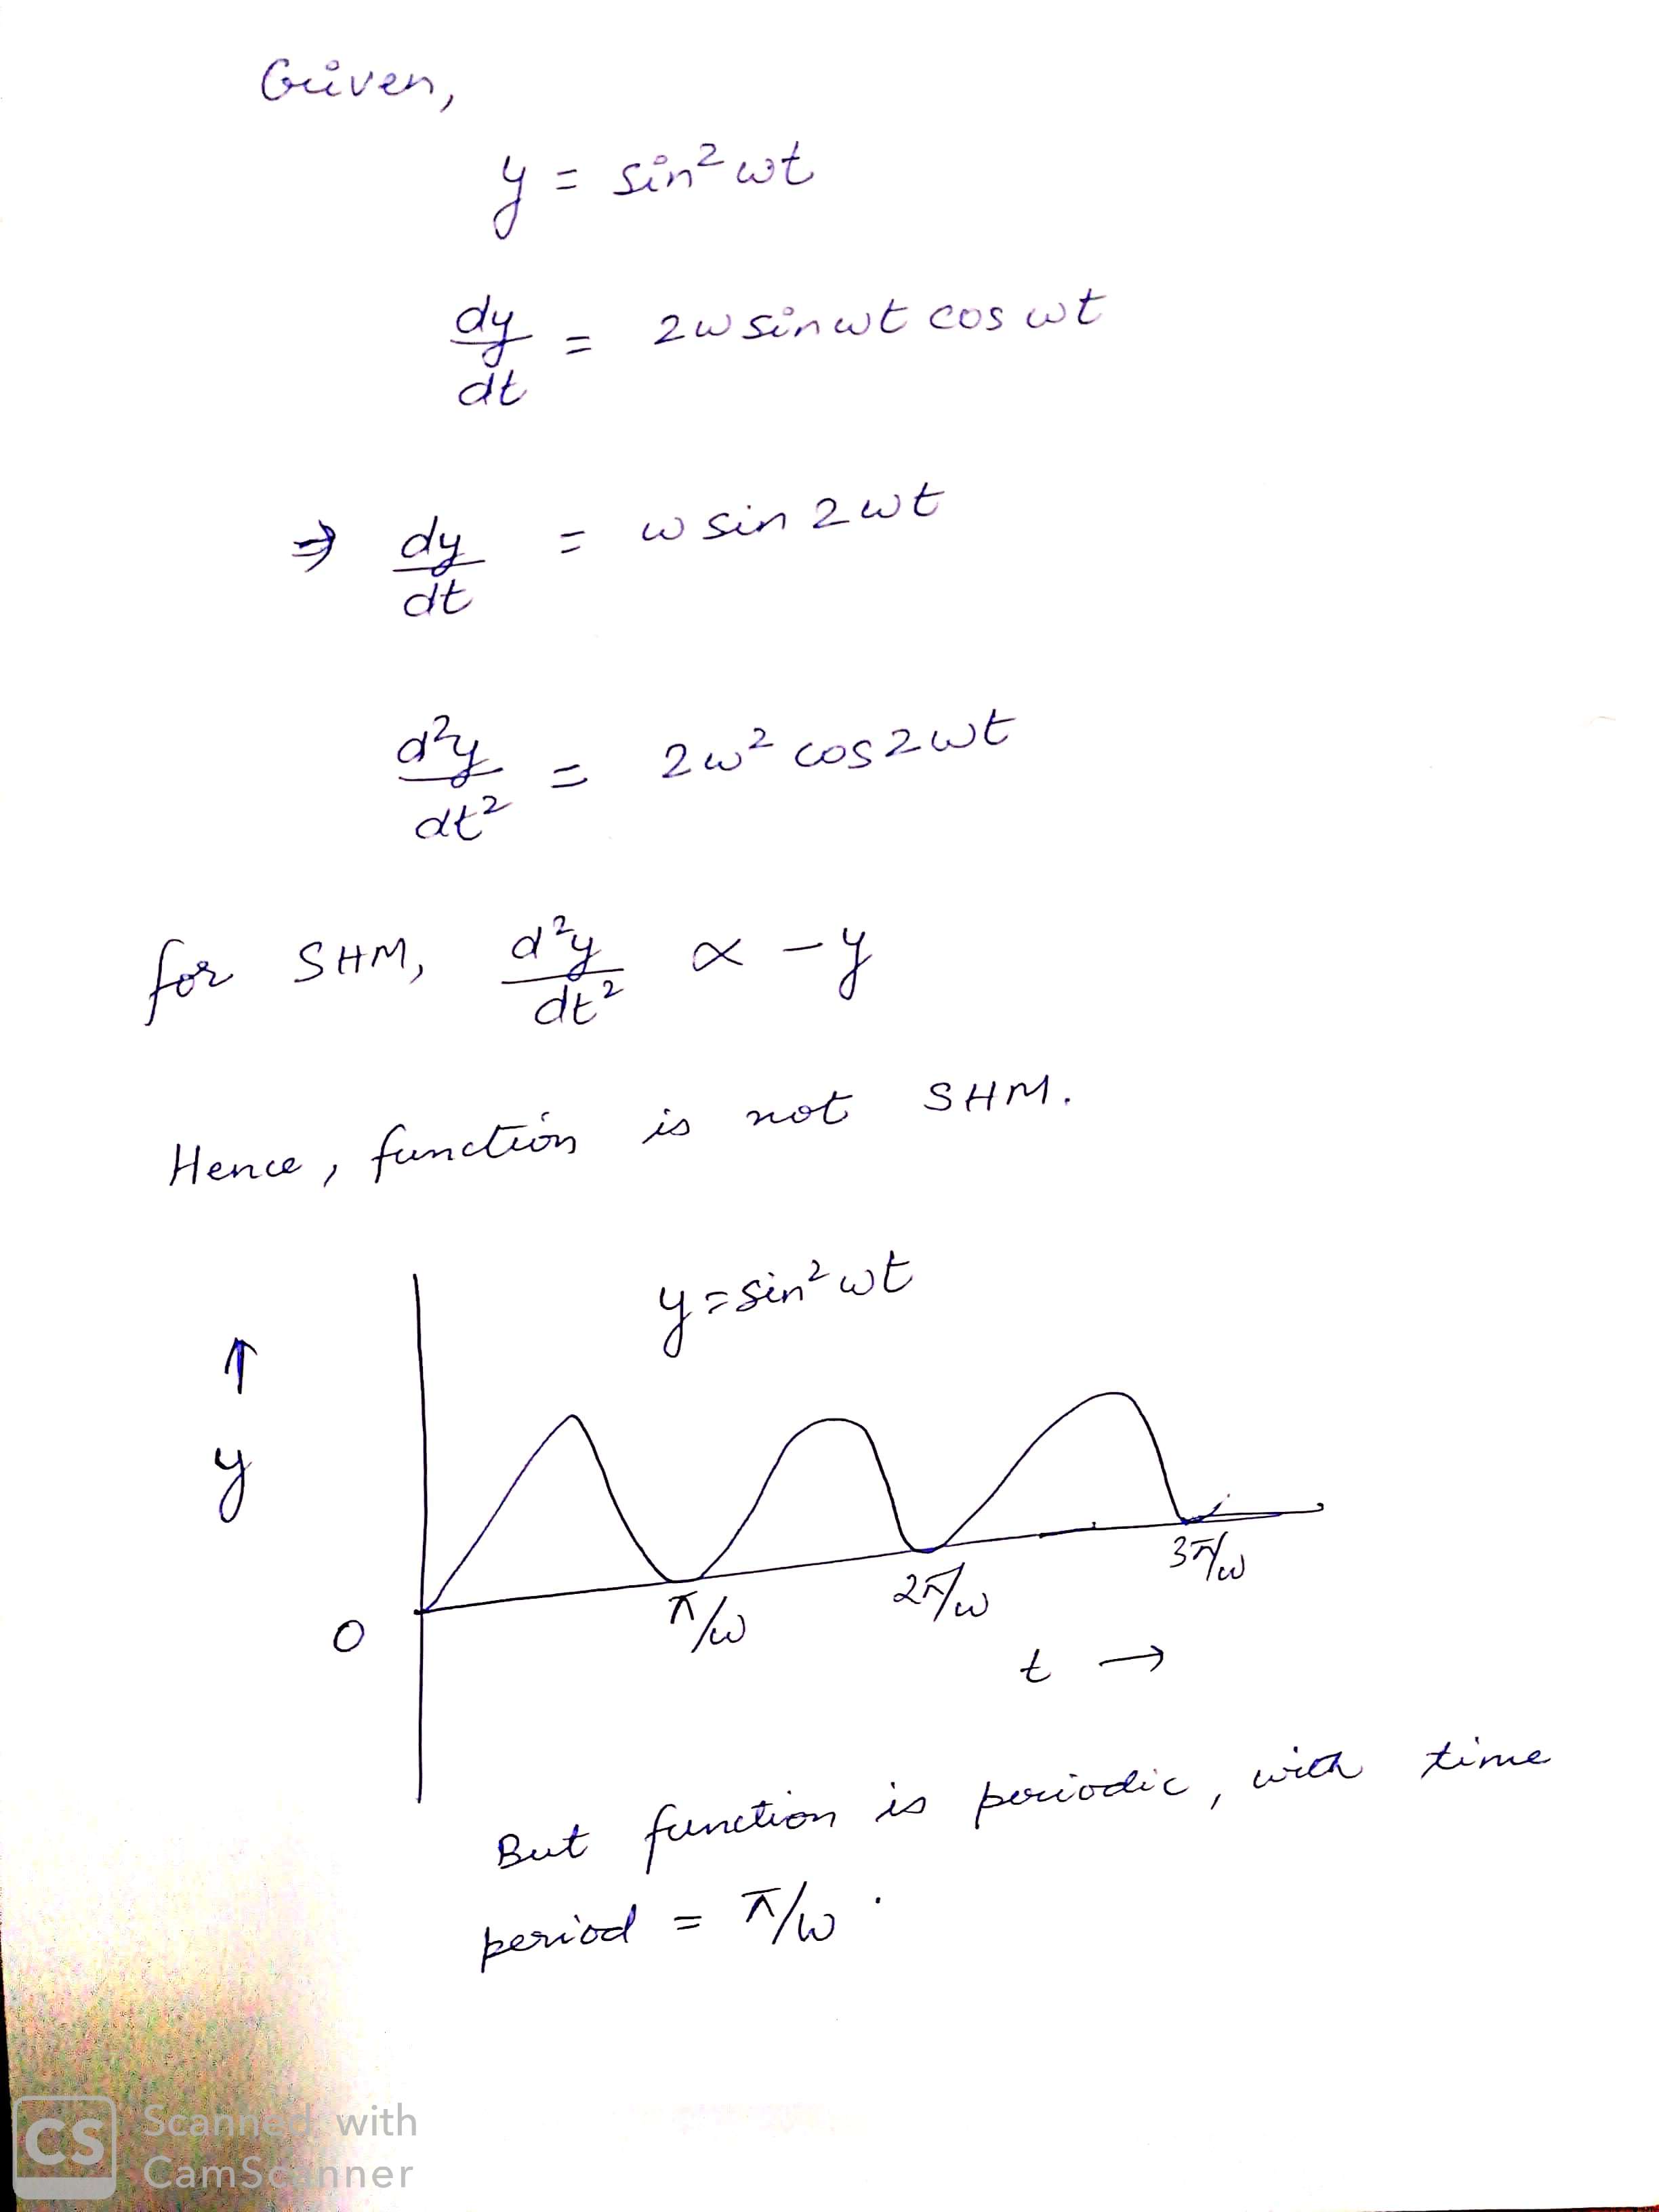 Given,
y = sin² ωt
dy/dt = 2ω sin ωt cos ωt
⇒ dy/dt = ω sin 2ωt
d²y/dt² = 2ω² cos 2ωt
for SHM, d²y/dt² ∝ -y
Hence, function is not SHM.
y = sin² ωt
↑
y
O
π/ω
2π/ω
3π/ω
t →
But function is periodic, with time
period = π/ω.
CS
Scanned with
CamScanner